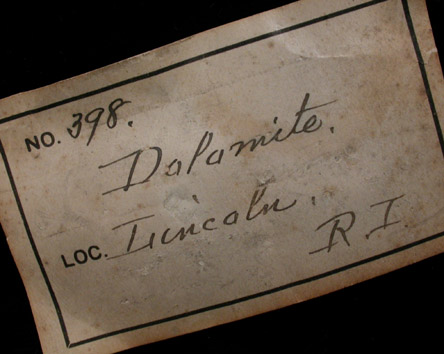 NO. 398.
Dolomite.
LOC. Lincoln.
R.I